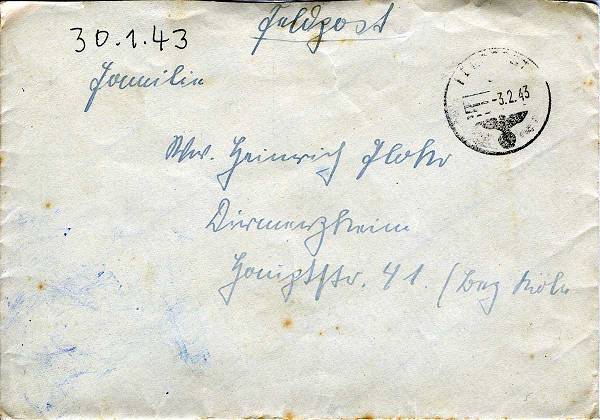 Feldpost
30.1.43
FELDPOST
-3.2.43
Familie
Ww. Heinrich
Dirmerzheim
Hauptstr. 41. (Bez Köln